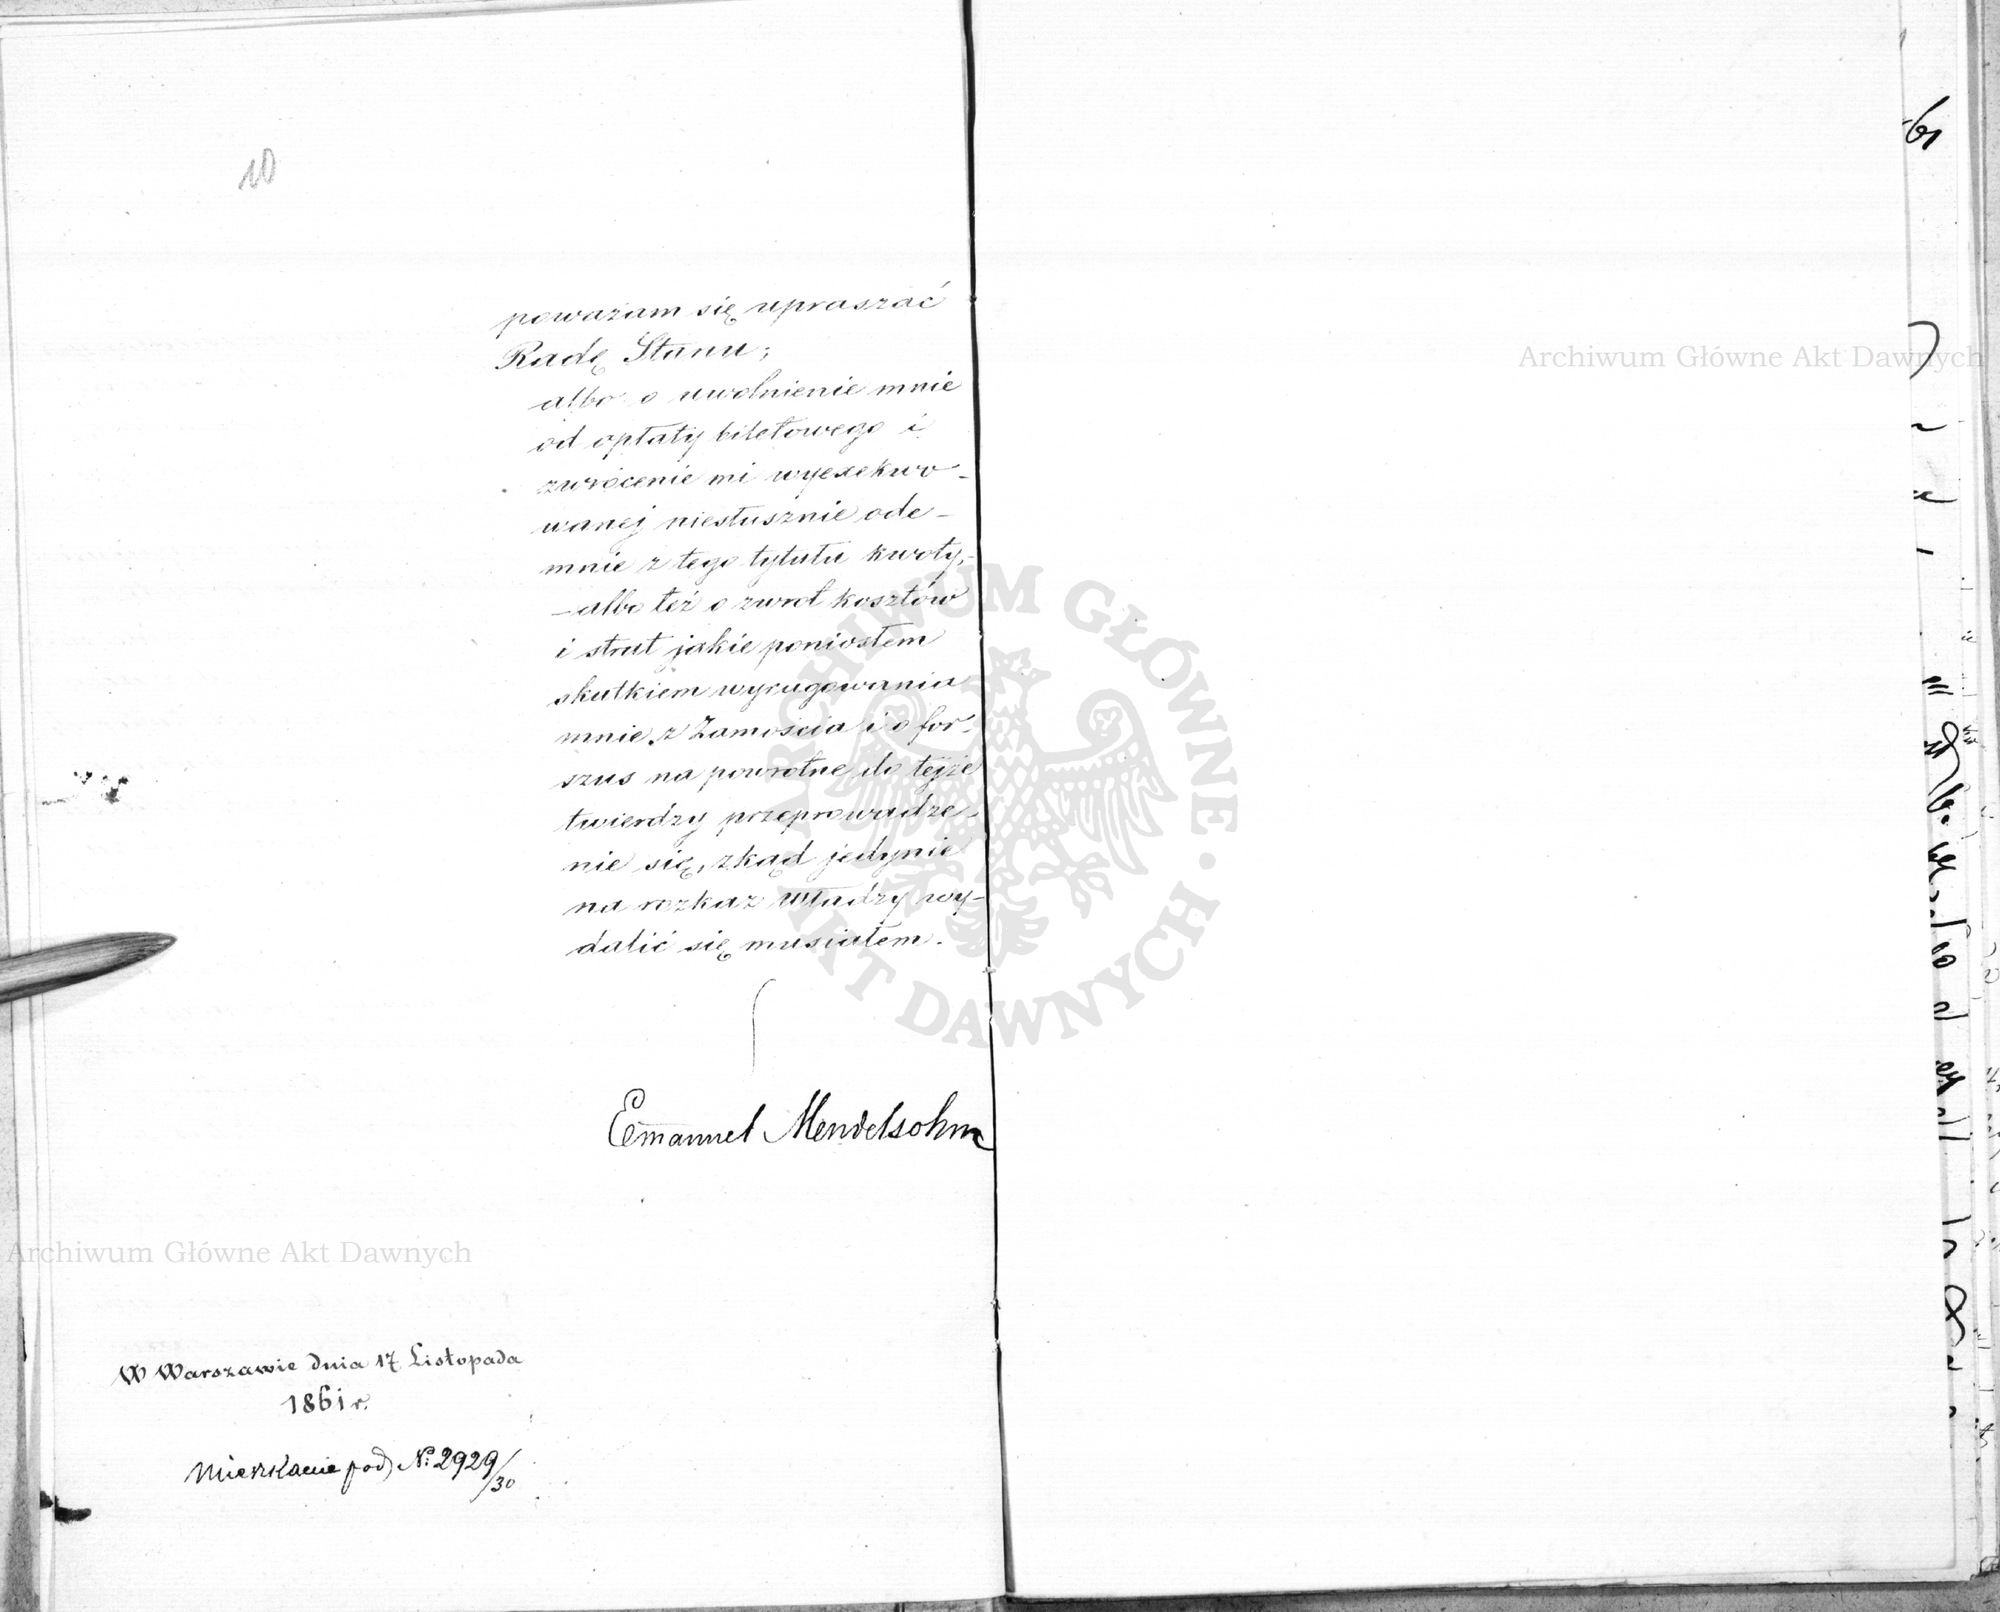 10
poważam się upraszać
Radę Stanu;
albo o uwolnienie mnie
od opłaty biletowego i
zwrócenie mi wyexekwo-
wanej niesłusznie ode-
mnie z tego tytułu kwoty,-
- albo też o zwrot kosztów
i strat jakie poniosłem
skutkiem wyrugowania
mnie z Zamościa i o for-
szus na powrotne do tejże
twierdzy przeprowadze-
nie się, zkąd jedynie
na rozkaz Władzy wy-
dalić się musiałem.
Emanuel Mendelsohn
W Warszawie dnia 17 Listopada
1861 r.
Mieszkanie pod No. 2929/30
Archiwum Główne Akt Dawnych
Archiwum Główne Akt Dawnych
ARCHIWUM GŁÓWNE · AKT DAWNYCH ·